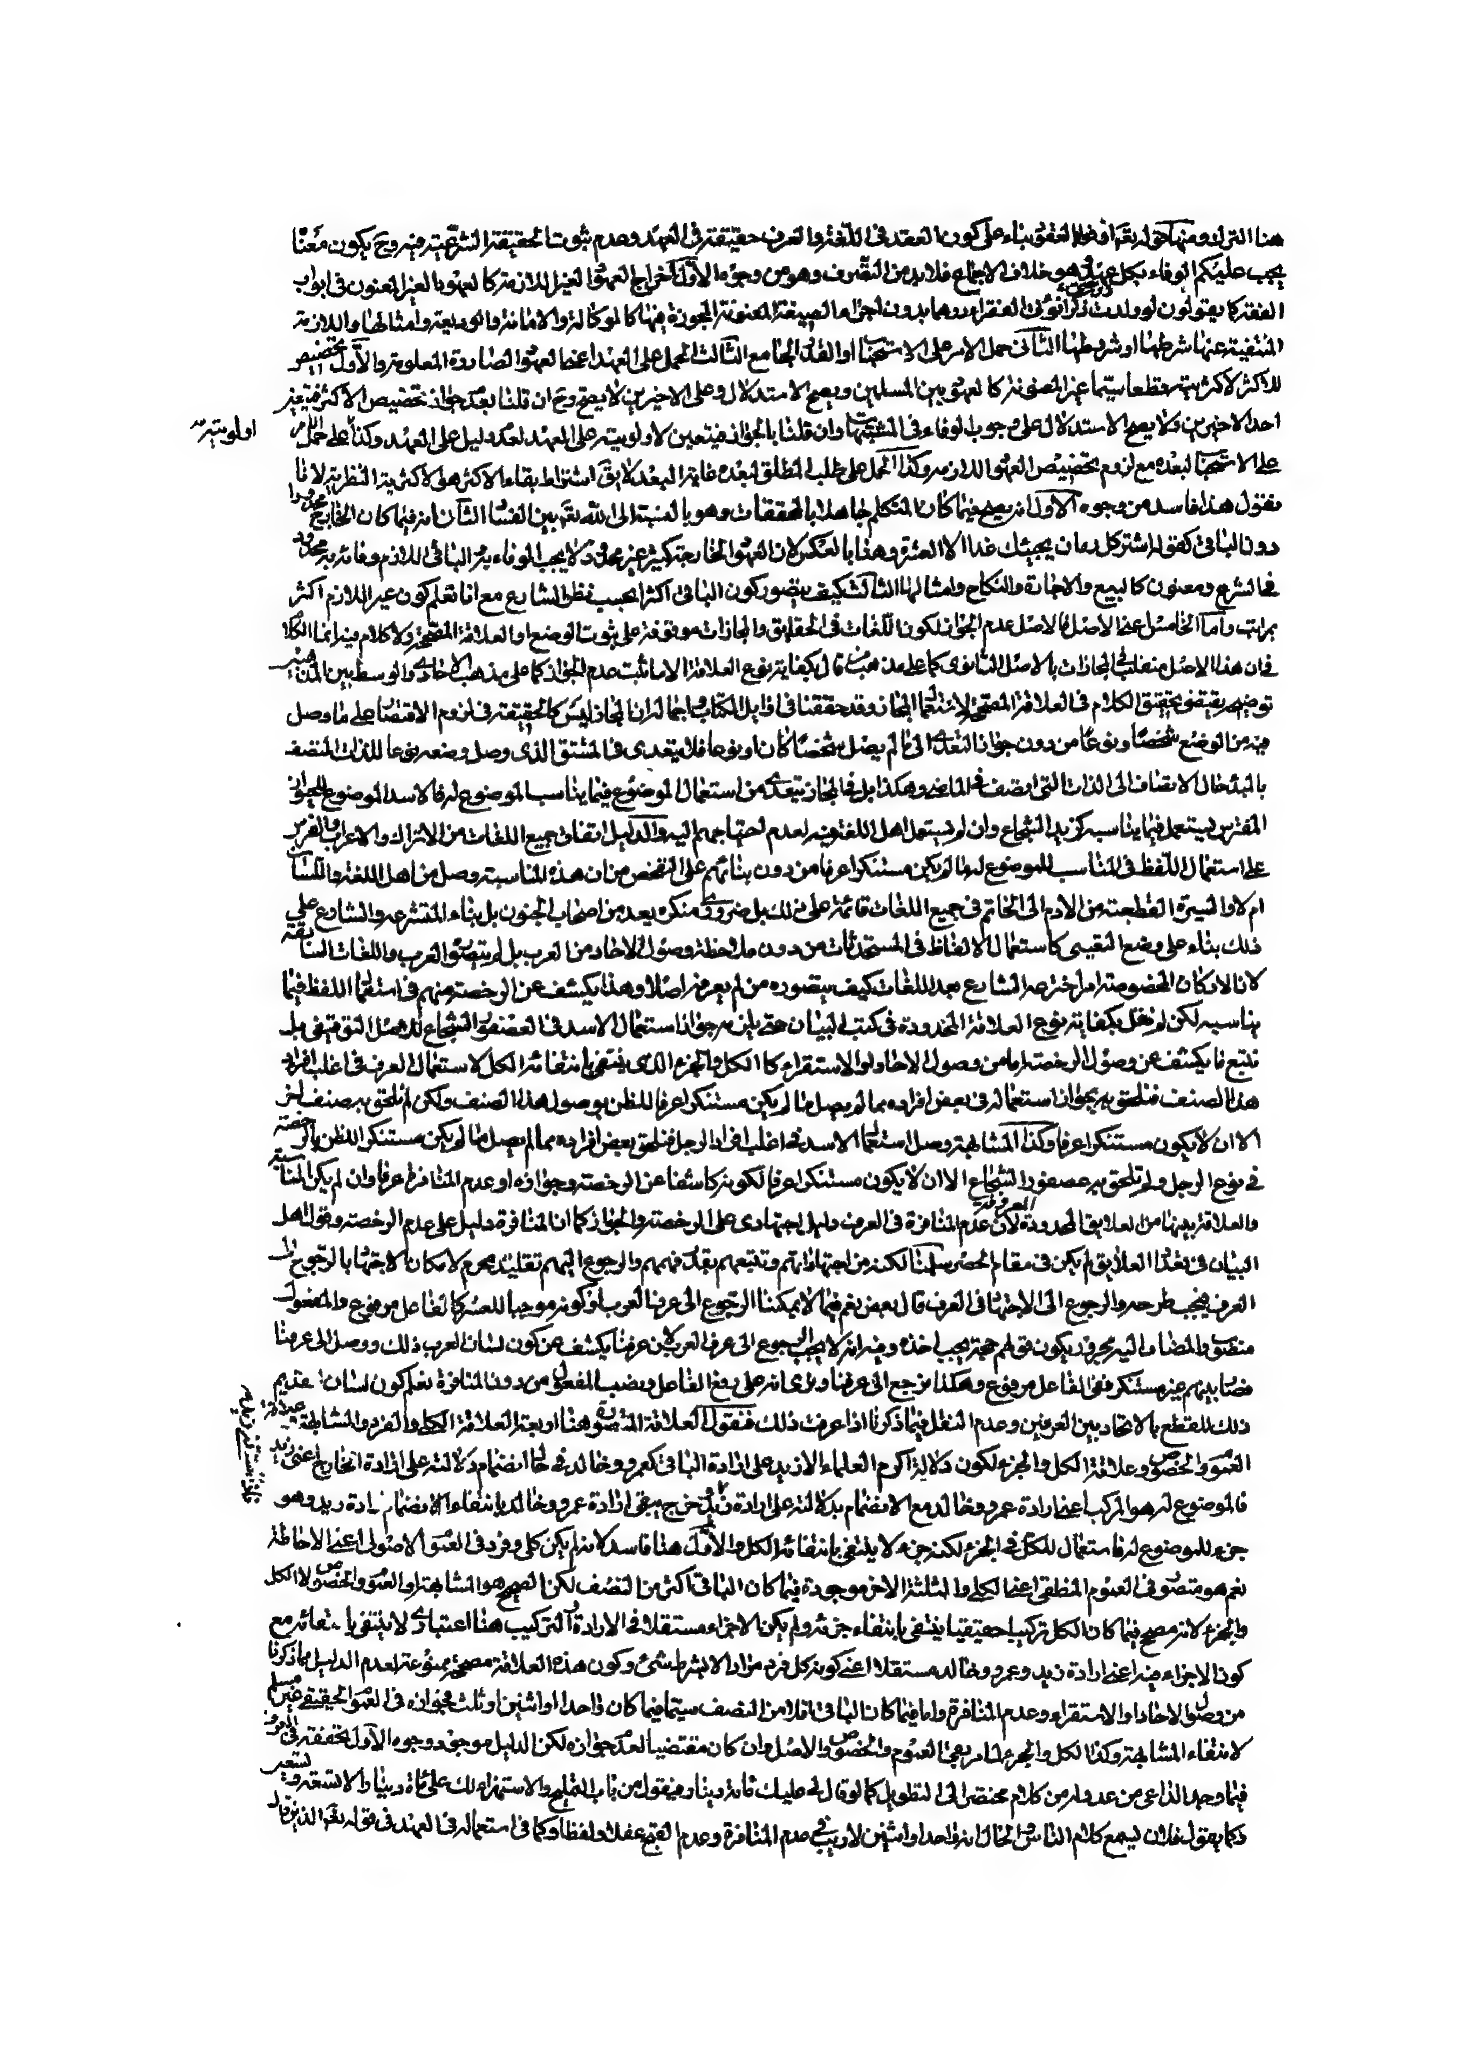 هذا التراك ومنها قوله تعالى اوفوا بالعقود بناء على كون العقد فى اللغة والعرف حقيقة فى العهد وعدم ثبوت الحقيقة الشرعية فيه وح يكون معنا
يجب عليكم الوفاء بكل عهد وهو خلاف الاجماع فلا بد من التصرف وهو من وجوه الاول اخراج العهود الغير اللازمة كالعهود الغير المعنون فى ابواب
الفقه كما يقولون لو ولدت ذكرا نوفى الفقراء درهما بدون اجراء الصيغة المعنونة المجوزة فيها كالموكالة والامانة والوديعة وامثالها واللازمة
المنتفية عنها شرطها او شرطها الثانى حمل الامر على الاستحباب او القدر الجامع الثالث الحمل على العهد اعنى العهود الصادرة المعلومة والاول تخصيص
للاكثر لاكثريته قطعا سيما غير المعنونة كالعهود بين المسلمين ويصح الاستدلال وعلى الاخيرين لا يصح وح ان قلنا بعدم جواز تخصيص الاكثر فيتعين
احد الاخيرين ولا يصح الاستدلال على وجوب الوفاء فى المشتبهات وان قلنا بالجواز فيتعين لاولويته على العهد لعدم دليل على العهد وكذا على حمل الامر
اولويته
على الاستحباب لبعده مع لزوم تخصيص العهود اللازمة وكذا الحمل على طلب المطلق لبعده غاية البعد لا يق اشتراط بقاء الاكثر هى الاكثرية النظرية لانا
نقول هذا فاسد من وجوه الاول انه يصح فيما كان المتكلم جاهلا بالمحققات وهو بالنسبة الى الله تعالى بين الفساد الثانى انه فيما كان الخارج محدودا
دون الباقى كقولك اشتر كل رمان يجيئك غدا الا العشرة وهذا بالعكس لان العهود الخارجة كثيرة غير محدود لا يجب الوفاء به والباقى اللازم وفائه به محدود
فى الشرع ومعنون كالبيع والاجارة والنكاح وامثالها الثالث كيف يتصور كون الباقى اكثر بحسب نظر الشارع مع انا نعلم كون غير اللازم اكثر
بمراتب واما الخامس اعنى الاصل فالاصل عدم الجواز لكون اللغات فى الحقايق والمجازات موقوفة على ثبوت الوضع او العلاقة المصححة ولا كلام فيه انما الكلام
فى ان هذا الاصل منقلب فى المجازات بالاصل الثانوى كما على مذهب من قال بكفاية نوع العلاقة الا ما ثبت عدم الجواز كما على مذهب الاحادى والوسط بين المذهبين
توضيحه يقتضى تحقيق الكلام فى العلاقة المصححة لاستعمال المجاز وقد حققنا فى اوايل الكتاب واجماله ان المجاز ليس كالحقيقة فى لزوم الاقتصار على ما وصل
فيه من الوضع شخصا ونوعا من دون جواز التعدى الى ما لم يصل شخصا كان او نوعا فلا يتعدى فى المشتق الذى وصل وضعه نوعا للذات المتصف
بالمبدء حال الاتصاف الى الذات التى اتصف فى الماضى وهكذا بل فى المجاز يتعدى من استعمال الموضوع فيما يناسب الموضوع له فالاسد الموضوع للحيوان
المفترس يستعمل فيما يناسبه كزيد الشجاع وان لم يستعمل اهل اللغة فيه لعدم احتياجهم اليه والدليل اتفاق جميع اللغات من الاتراك والاعراب والفرس
على استعمال اللفظ فى المناسب للموضوع له ما لم يكن مستنكرا عرفا من دون بنائهم على التفحص من ان هذه المناسبة وصل من اهل اللغة واللسان
ام لا والسيرة القطعية من الادم الى الخاتم فى جميع اللغات قائمة على ذلك بل ضرورى منكره يعد من اصحاب الجنون بل بناء المتشرعة والشارع على
ذلك بناء على وضع التعيينى كاستعمال الالفاظ فى المستحدثات من دون ملاحظة وصول الاحاد من العرب بل لم يتصور العرب واللغات السابقة
لان الاركان المخصوصة امر اخترعه الشارع بعد اللغات كيف يتصوره من لم يعرفه اصلا وهذا يكشف عن الرخصة منهم فى استعمال اللفظ فيما
يناسبه لكن لم نقل بكفاية نوع العلاقة المحدودة فى كتب البيان حتى يلزم جواز استعمال الاسد فى العصفور الشجاع للاصل التوقيفى بل
نتبع ما يكشف عن وصول الرخصة اما من وصول الاحاد او الاستقراء كالكل والجزء الذى ينتفى بانتفائه الكل لاستعمال العرف فى اغلب افراد
هذا الصنف فنلحق به بجواز استعماله فى بعض افراده مما لم يصل ما لم يكن مستنكرا عرفا للظن بوصول هذا الصنف ولكن لم نلحق به صنف اخر
الا ان لا يكون مستنكرا عرفا وكذا المشابهة وصل استعمال الاسد فى اغلب افراد الرجل فنلحق بعض افراده مما لم يصل ما لم يكن مستنكرا للظن بالرخصة
فى نوع الرجل ولم نلحق به عصفور الشجاع الا ان لا يكون مستنكرا عرفا لكونه كاشفا عن الرخصة وجوازه او عدم المنافرة عرفا وان لم يكن المناسبة
والعلاقة بينها من العلايق المحدودة لان عدم المنافرة فى العرف دليل اجتهادى على الرخصة والجواز كما ان المنافرة دليل على عدم الرخصة وقول اهل
البيان فى تعداد العلايق لم يكن فى مقام الحصر سلمنا لكنه من اجتهاداتهم وتتبعهم بقدر فهمهم والرجوع اليهم تقليد محرم لامكان الاجتهاد بالرجوع الى
العرف فيجب طرحه والرجوع الى الاجتهاد فى العرف قال بعض نعم فيما لا يمكننا الرجوع الى عرف العرب او كونه موجبا للعسر كالفاعل مرفوع والمفعول
منصوب والمضاف اليه مجرور يكون قولهم حجة يجب اخذه وفيه انه لا يجب الرجوع الى عرف العرب لان عرفنا يكشف عن كون لسان العرب ذلك ووصل الى عرفنا
ذلك للقطع بالاتحاد بين العرفين وعدم النقل فيما ذكرنا اذا عرفت ذلك فنقول العلاقة المتصورة هنا اربعة العلاقة الكلى والفرد والمشابهة
العموم والخصوص وعلاقة الكل والجزء لكون دلالة اكرم العلماء الا زيد على ارادة الباقى كعمرو وخالد فى حال انضمام دلالته على ارادة الخارج اعنى زيد
فالموضوع له هو المركب اعنى ارادة عمرو وخالد مع الانضمام بدلالته على ارادة زيد وخرج يبقى ارادة عمرو وخالد بانتفاء الانضمام ارادة زيد وهو
جزء للموضوع له فاستعمال للكل فى الجزء لكنه جزء لا ينتفى بانتفائه الكل والاول هنا فاسد لانه لم يكن كلى وفرد فى العموم الاصولى اعنى الاحاطة
نعم هو متصور فى العموم المنطقى اعنى الكلى والثلثة الاخر موجودة فيما كان الباقى اكثر من النصف لكن الصحيح هو المشابهة او العموم والخصوص لا الكل
والجزء لانه مصحح فيما كان الكل تركيبا حقيقيا ينتفى بانتفاء جزئه ولم يكن الاجزاء مستقلا فى الارادة والتركيب هنا اعتبارى لا ينتفى بانتفائه مع
كون الاجزاء فيه اعنى ارادة زيد وعمرو وخالد مستقلا اعنى كونه كل فرد مراد لا بشرط شئ وكون هذه العلاقة مصححة ممنوعة لعدم الدليل مما ذكرنا
من وصول الاحاد او الاستقراء وعدم المنافرة واما فيما كان الباقى اقلا من النصف سيما فيما كان واحدا او اثنين او ثلث فجوازه فى العموم الحقيقى غير مسلم
لانتفاء المشابهة وكذا الكل والجزء لما مر بقى العموم والخصوص والاصل وان كان مقتضيا لعدم جوازه لكن الدليل موجود وجوه الاول تحققه فى العرف
فيما وجد الداعى من عدوله من كلام مختصر الى التطويل كما لو قال له عليك مائة دينار فيقول من باب التمليح والاستهزاء لك على مائة دينار الا تسعة وتسعين
وكما يقول فلان يسمع كلام الناس والحال انه واحدا واثنين لا ريب فى عدم المنافرة وعدم القبح عقلا ولفظا وكما فى استعماله فى العهد فى قوله تعالى الذين قال